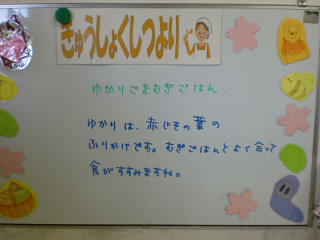 きゅうしょくしつより
ゆかりごまむぎごはん.
ゆかりは、赤じその葉の
ふりかけです。むぎごはんとよく合って
食がすすみますね。